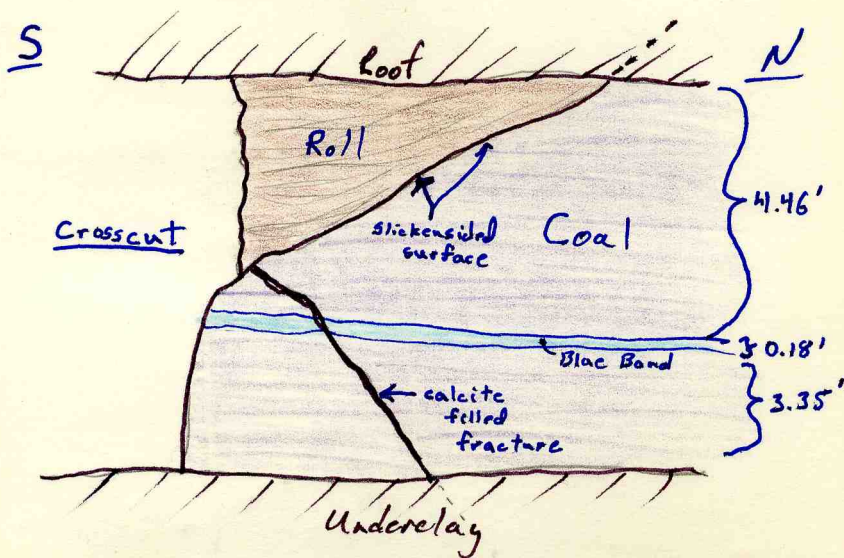 S
N
Roof
Roll
4.46'
Crosscut
slickensided
surface
Coal
Blue Band
0.18'
calcite
filled
fracture
3.35'
Underclay